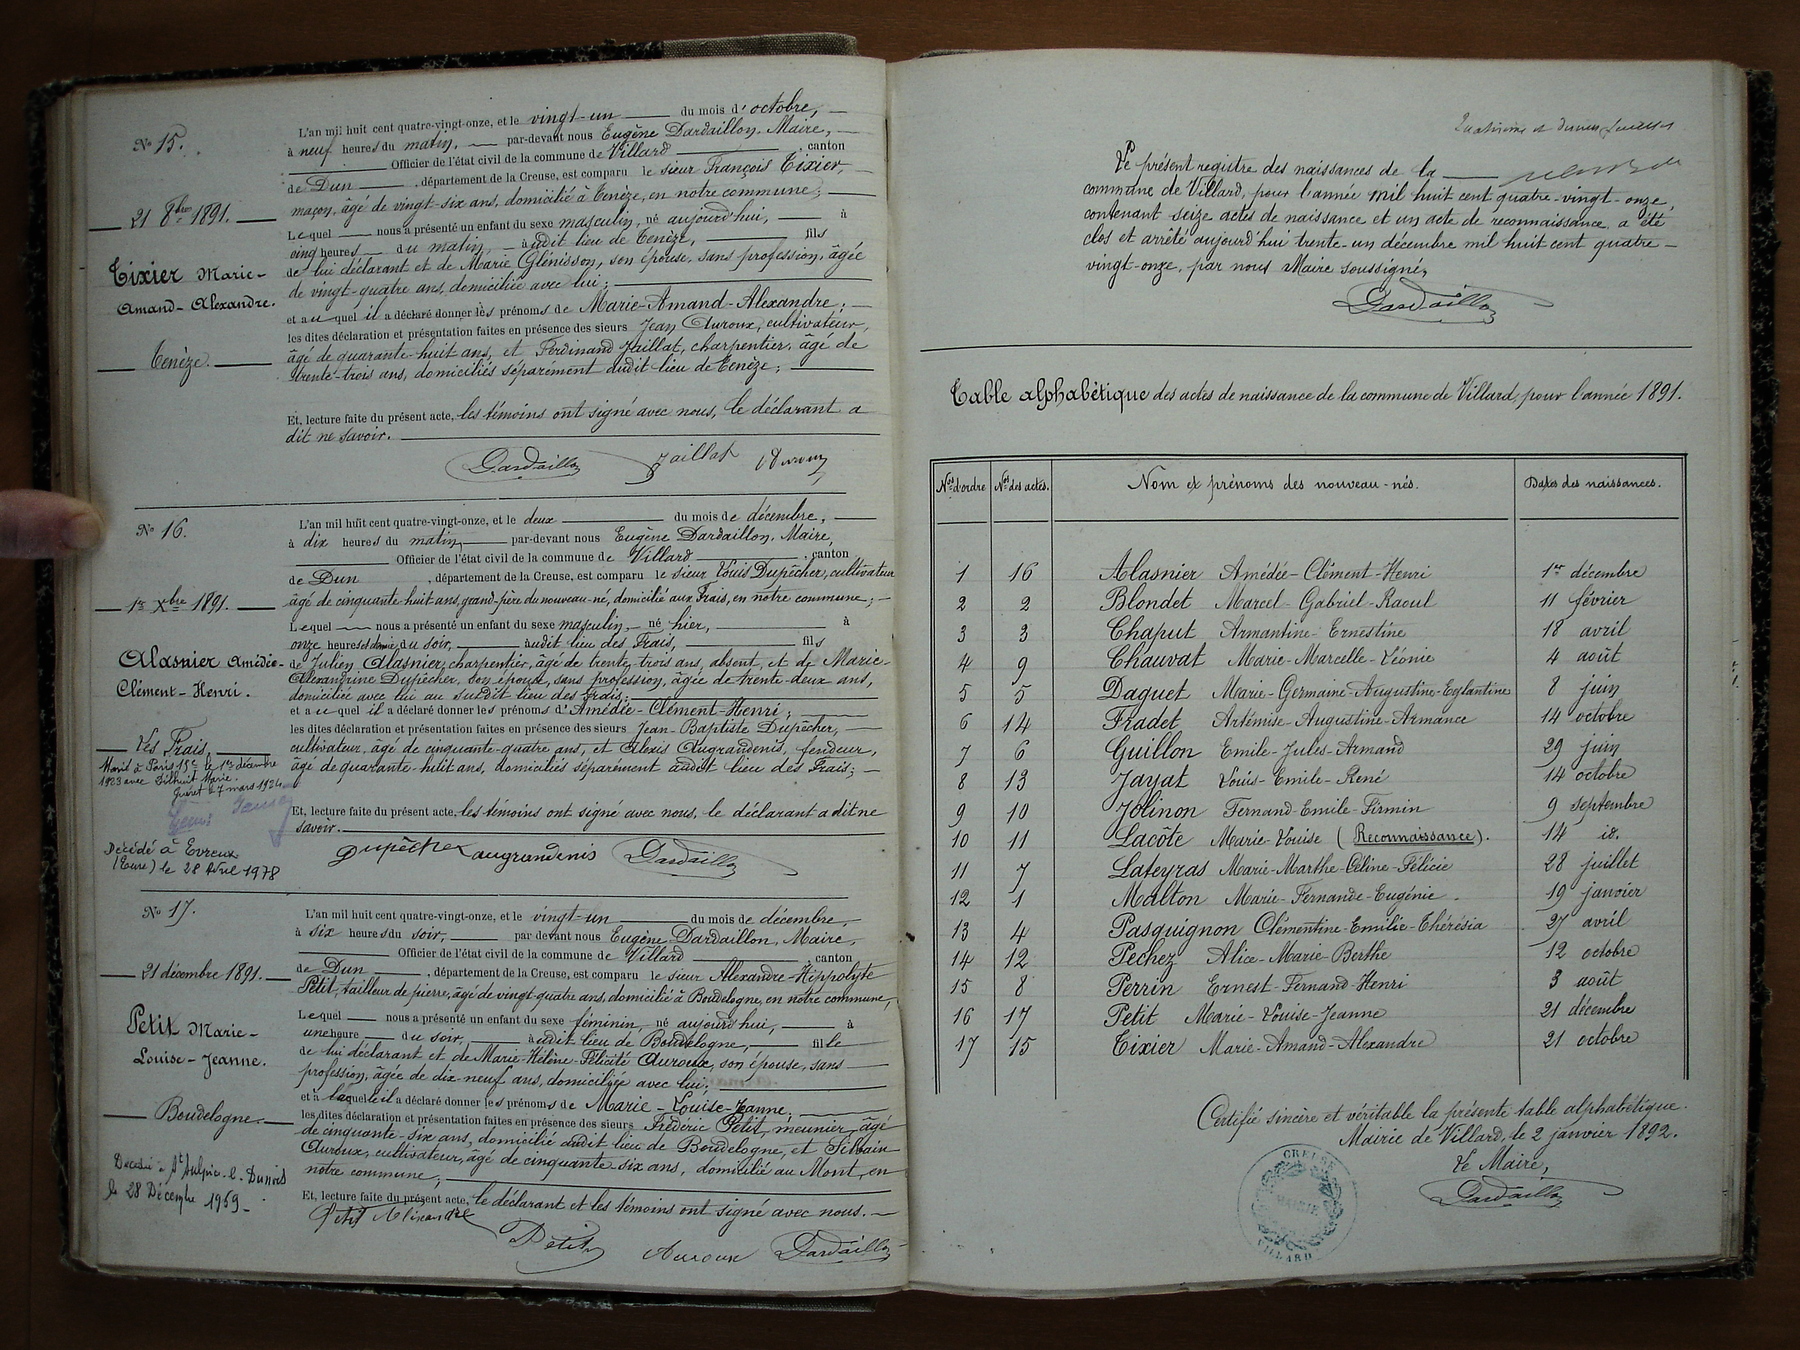 No 15.
21 8bre 1891.
Tixier Marie-
Amand-Alexandre.
Tenèze.
L'an mil huit cent quatre-vingt-onze, et le vingt-un du mois d'octobre,
à neuf heures du matin, par-devant nous Eugène Dardaillon, Maire,
Officier de l'état civil de la commune de Villard, canton
de Dun, département de la Creuse, est comparu le sieur François Tixier,
maçon, âgé de vingt-six ans, domicilié à Tenèze, en notre commune;
Lequel nous a présenté un enfant du sexe masculin, né aujourd'hui, à
cinq heures du matin, audit lieu de Tenèze, fils
de lui déclarant et de Marie Glénisson, son épouse, sans profession, âgée
de vingt-quatre ans, domiciliée avec lui;
et auquel il a déclaré donner les prénoms de Marie-Amand-Alexandre;
les dites déclaration et présentation faites en présence des sieurs Jean Auroux, cultivateur,
âgé de quarante-huit ans, et Ferdinand Jaillat, charpentier, âgé de
trente-trois ans, domiciliés séparément audit lieu de Tenèze;
Et, lecture faite du présent acte, les témoins ont signé avec nous, le déclarant a
dit ne savoir.
Dardaillon Jaillat Auroux
No 16.
1er Xbre 1891.
Alasnier Amédée-
Clément-Henri.
Les Frais
Marié à Paris 15e le 1er décembre
1923 avec Marie.
Guéret le 7 mars 1924
Décédé à Evreux
(Eure) le 28 Avril 1978
L'an mil huit cent quatre-vingt-onze, et le deux du mois de décembre,
à dix heures du matin, par-devant nous Eugène Dardaillon, Maire,
Officier de l'état civil de la commune de Villard, canton
de Dun, département de la Creuse, est comparu le sieur Louis Dupêcher, cultivateur
âgé de cinquante-huit ans, grand-père du nouveau-né, domicilié aux Frais, en notre commune;
Lequel nous a présenté un enfant du sexe masculin, né hier, à
onze heures et demie du soir, audit lieu des Frais, fils
de Julien Alasnier, charpentier, âgé de trente-trois ans, absent, et de Marie-
Alexandrine Dupêcher, son épouse, sans profession, âgée de trente-deux ans,
domiciliée avec lui au susdit lieu des Frais;
et auquel il a déclaré donner les prénoms d'Amédée-Clément-Henri;
les dites déclaration et présentation faites en présence des sieurs Jean-Baptiste Dupêcher,
cultivateur, âgé de cinquante-quatre ans, et Alexis Augrandenis, fendeur,
âgé de quarante-huit ans, domiciliés séparément audit lieu des Frais;
Et, lecture faite du présent acte, les témoins ont signé avec nous, le déclarant a dit ne
savoir.
Dupêcher augrandenis Dardaillon
No 17.
21 décembre 1891.
Petit Marie-
Louise-Jeanne.
Boudelogne.
Décédée à St Sulpice-le-Dunois
le 28 Décembre 1959
L'an mil huit cent quatre-vingt-onze, et le vingt-un du mois de décembre,
à six heures du soir, par devant nous Eugène Dardaillon, Maire,
Officier de l'état civil de la commune de Villard, canton
de Dun, département de la Creuse, est comparu le sieur Alexandre-Hippolyte
Petit, tailleur de pierre, âgé de vingt-quatre ans, domicilié à Boudelogne, en notre commune,
Lequel nous a présenté un enfant du sexe féminin, né aujourd'hui, à
une heure du soir, audit lieu de Boudelogne, fille
de lui déclarant et de Marie-Hélène-Félicité Auroux, son épouse, sans
profession, âgée de dix-neuf ans, domiciliée avec lui;
et à laquelle il a déclaré donner les prénoms de Marie-Louise-Jeanne;
les dites déclaration et présentation faites en présence des sieurs Frédéric Petit, meunier, âgé
de cinquante-six ans, domicilié audit lieu de Boudelogne, et Silvain
Auroux, cultivateur, âgé de cinquante-six ans, domicilié au Mont, en
notre commune;
Et, lecture faite du présent acte, le déclarant et les témoins ont signé avec nous.
Petit Alexandre
Petit Auroux Dardaillon
Quatrième et dernier feuillet
Le présent registre des naissances de la
commune de Villard, pour l'année mil huit cent quatre-vingt-onze,
contenant seize actes de naissance et un acte de reconnaissance, a été
clos et arrêté aujourd'hui trente-un décembre mil huit cent quatre-
vingt-onze, par nous Maire soussigné,
Dardaillon
Table alphabétique des actes de naissance de la commune de Villard, pour l'année 1891.
Nos d'ordre Nos des actes. Nom et prénoms des nouveau-nés. Dates des naissances.
1 16 Alasnier Amédée-Clément-Henri 1er décembre
2 2 Blondet Marcel-Gabriel-Raoul 11 février
3 3 Chaput Armantine-Ernestine 18 avril
4 9 Chauvat Marie-Marcelle-Léonie 4 août
5 5 Daguet Marie-Germaine-Augustine-Eglantine 8 juin
6 14 Fradet Artémise-Augustine-Armance 14 octobre
7 6 Guillon Emile-Jules-Armand 29 juin
8 13 Jayat Louis-Emile-René 14 octobre
9 10 Jolinon Fernand-Emile-Firmin 9 septembre
10 11 Lacôte Marie-Louise (Reconnaissance). 14 id.
11 7 Lateyras Marie-Marthe-Céline-Félicie 28 juillet
12 1 Malton Marie-Fernande-Eugénie. 19 janvier
13 4 Pasquignon Clémentine-Emilie-Thérésia 27 avril
14 12 Pechez Alice-Marie-Berthe 12 octobre
15 8 Perrin Ernest-Fernand-Henri 3 août
16 17 Petit Marie-Louise-Jeanne 21 décembre
17 15 Tixier Marie-Amand-Alexandre 21 octobre
Certifié sincère et véritable la présente table alphabétique.
Mairie de Villard, le 2 janvier 1892.
Le Maire,
Dardaillon
CREUSE
MAIRIE
VILLARD